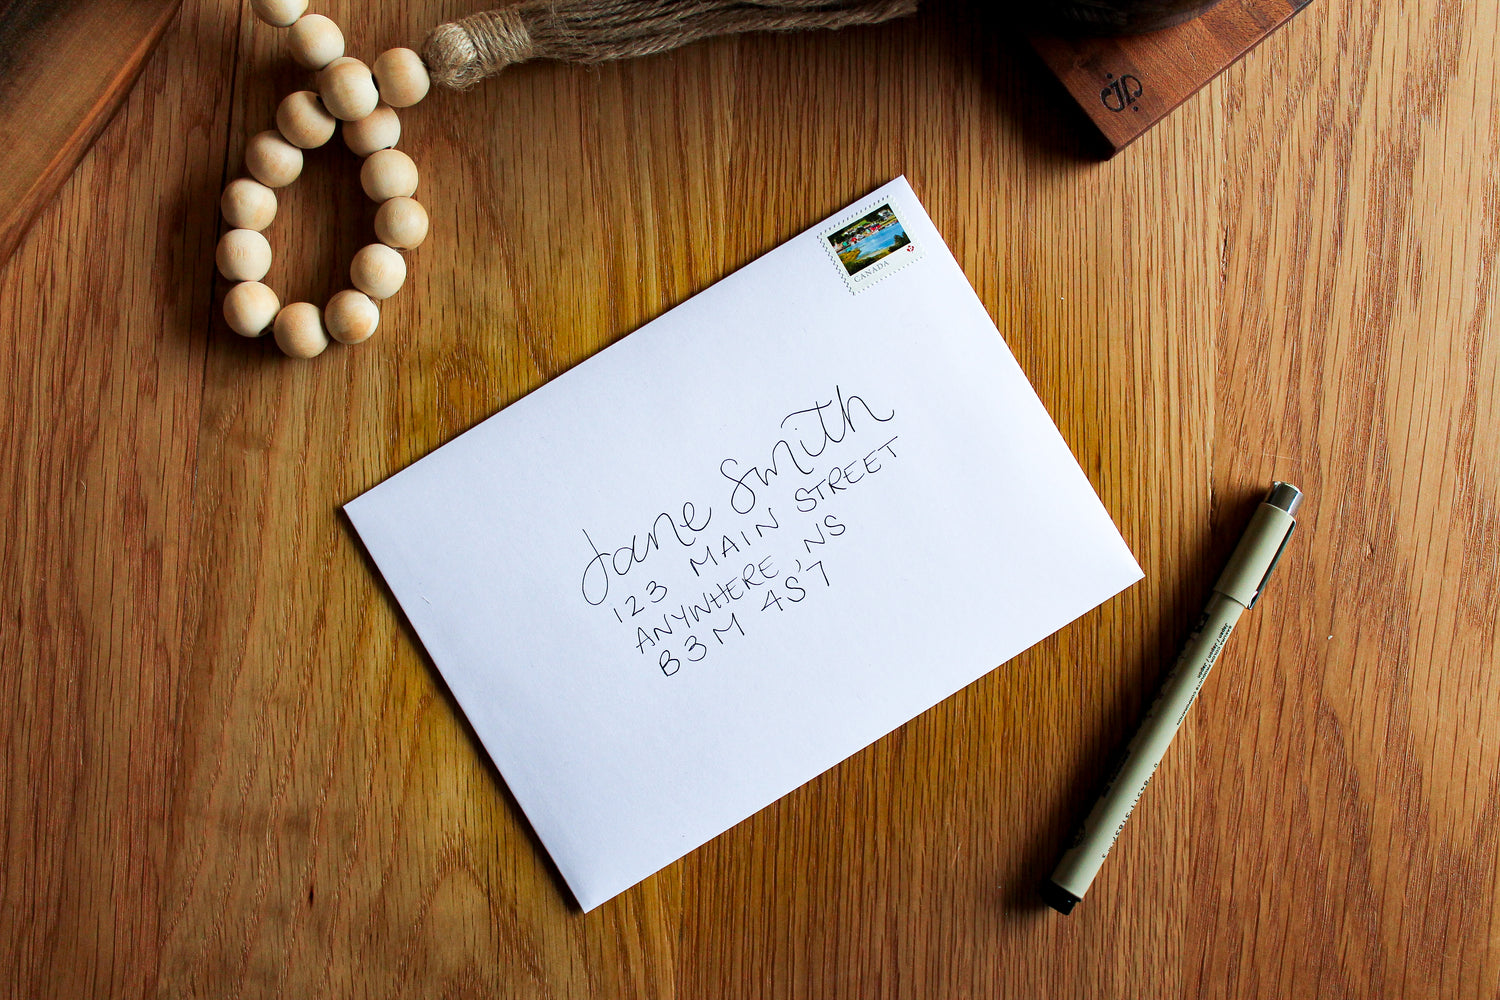 CANADA
Jane Smith
123 MAIN STREET
ANYWHERE, NS
B3M 4S7